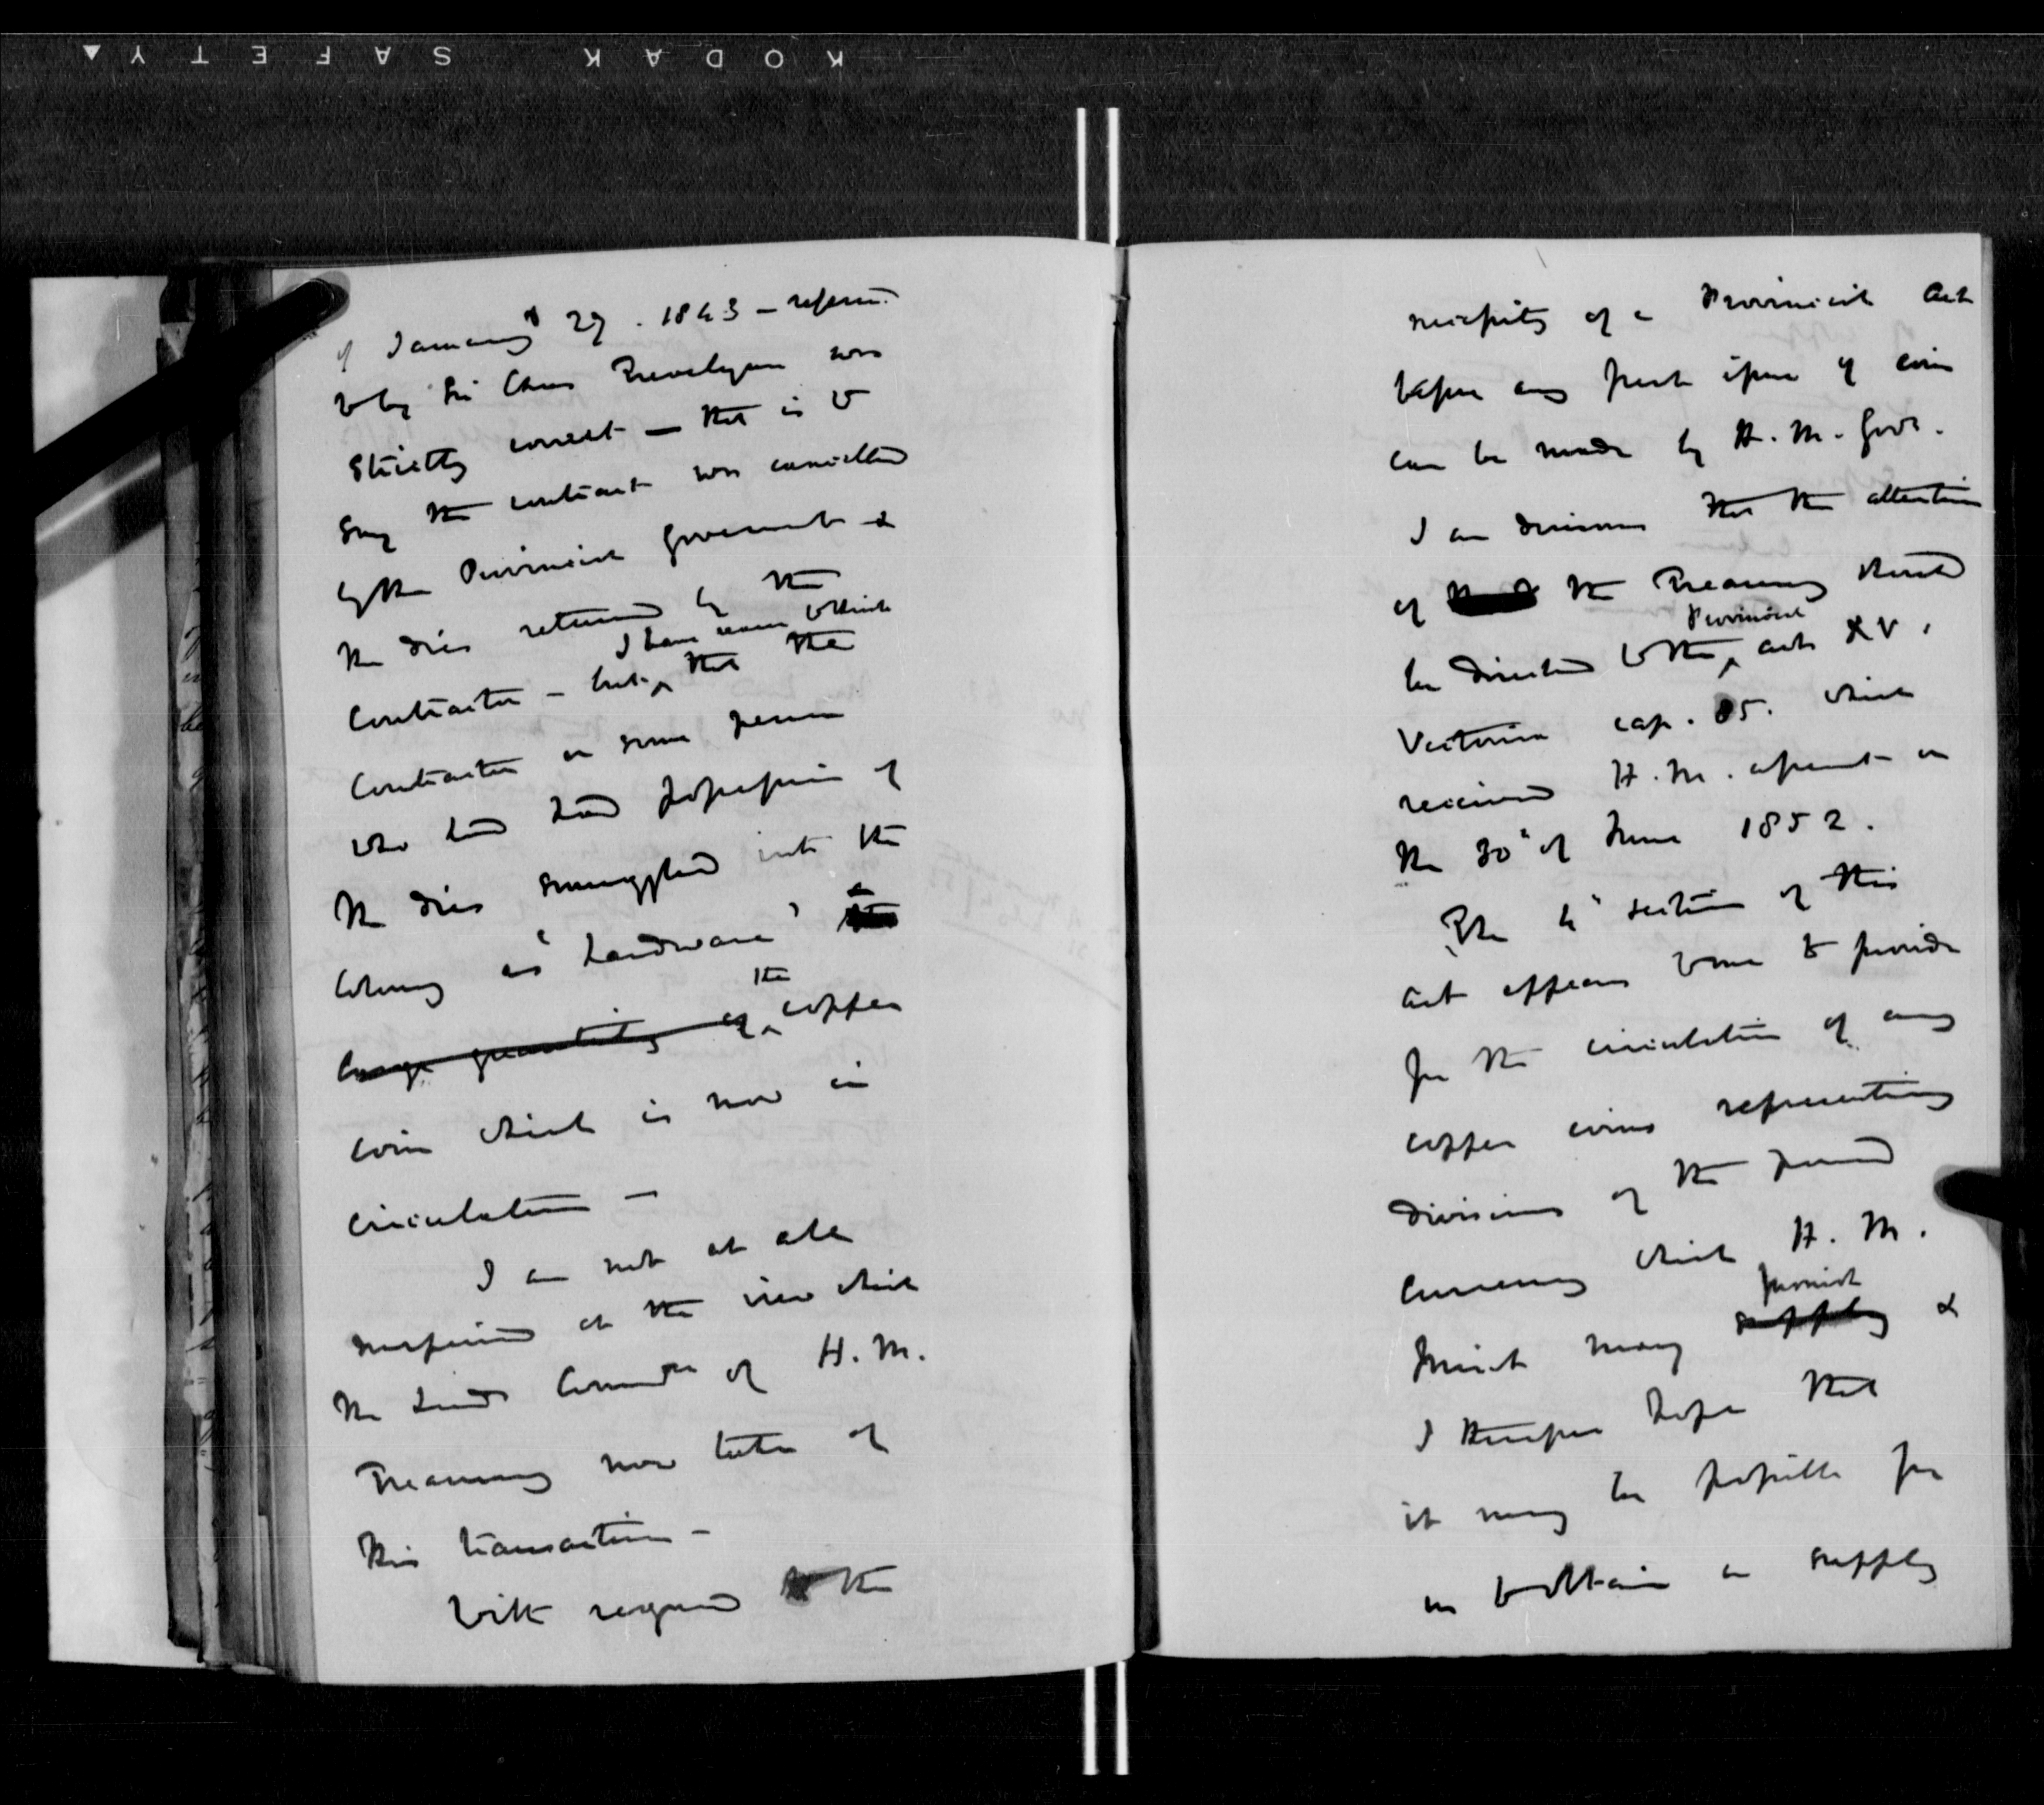 KODAK SAFETY
of January 29. 1843 – referred
to by Sir Chas Trevelyan was
strictly correct — that is to
say the contract was cancelled
by the Provincial Government &
the dies returned by the
I have reason to think
Contractor – but that the
Contractor or some person
who had had possession of
the dies smuggled into the
Colony as "hardware" a
large quantity of the copper
coin which is now in
circulation –
I am not at all
surprised at the view which
the Lords Commrs of H. M.
Treasury now take of
this transaction –
With regard to the
necessity of a Provincial Act
before any fresh issue of coin
can be made by H. M. Govt.
I am desirous that the attention
of the Treasury should
Provincial
be directed to the acts XV.
Victoria cap. 85. which
received H. M. assent on
the 30" of June 1852.
The 4" section of this
Act appears to me to provide
for the circulation of any
copper coins representing
divisions of the pound
currency which H. M.
furnish
Mint may supply &
I therefore hope that
it may be possible for
us to obtain a supply